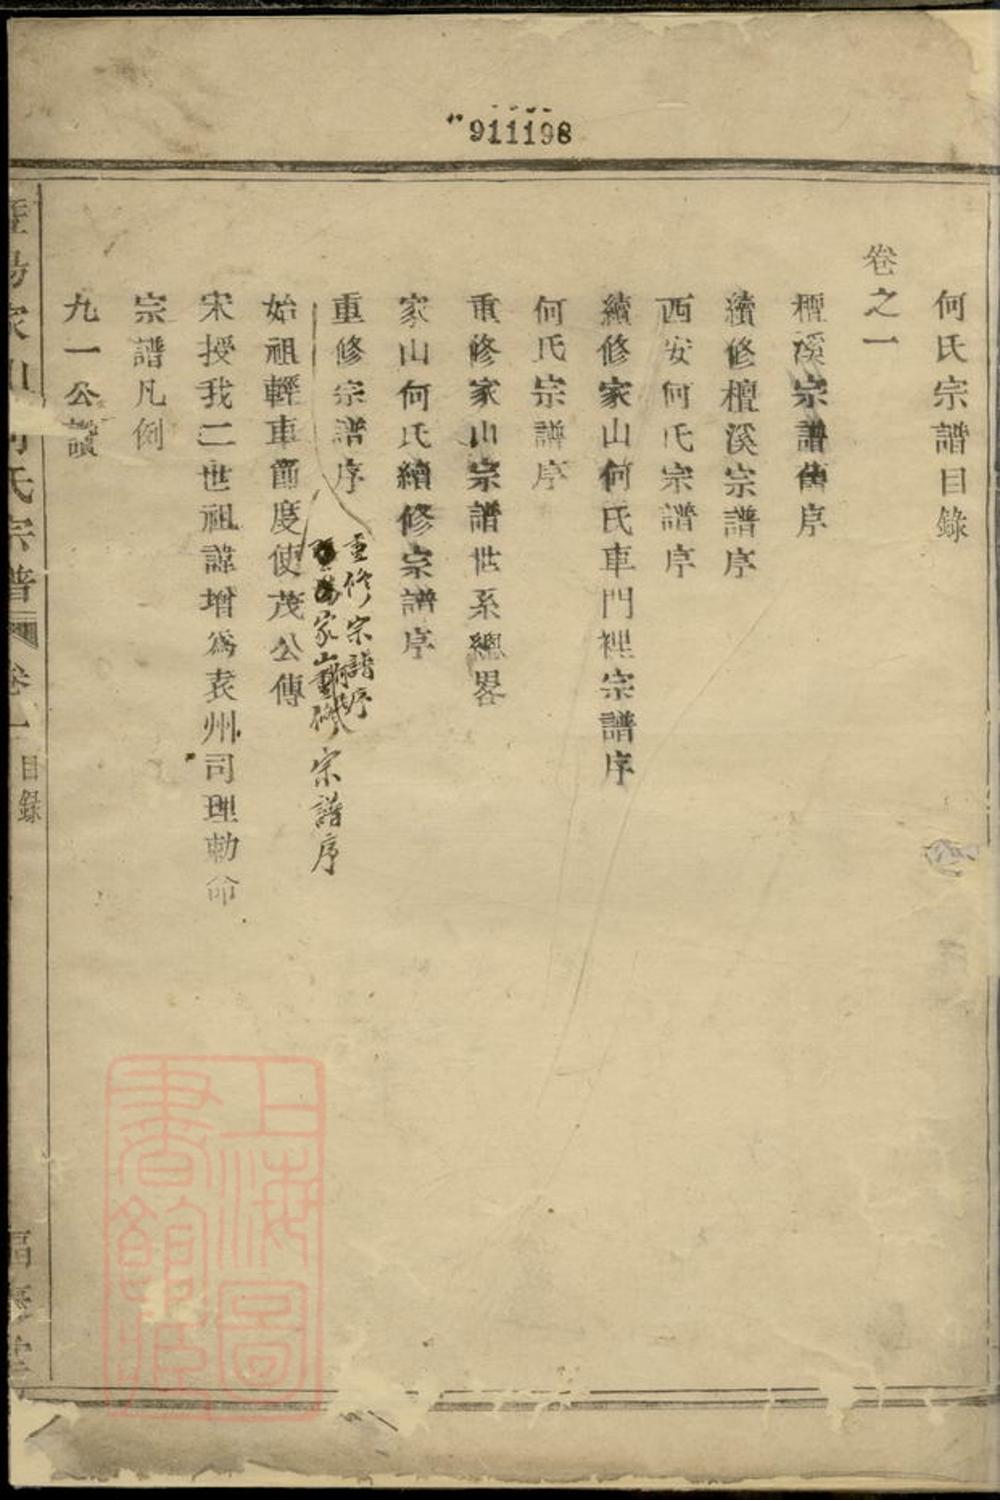 911198
何氏宗譜目錄
卷之一
檀溪宗譜舊序
續修檀溪宗譜序
西安何氏宗譜序
續修家山何氏車門裡宗譜序
何氏宗譜序
重修家山宗譜世系總畧
家山何氏續修宗譜序
重修宗譜序
重修宗譜序
家山重修宗譜序
始祖輕車節度使茂公傳
宋授我二世祖諱增爲袁州司理勅命
宗譜凡例
九一公讚
暨陽家山何氏宗譜 卷一 目錄
上海圖書館藏